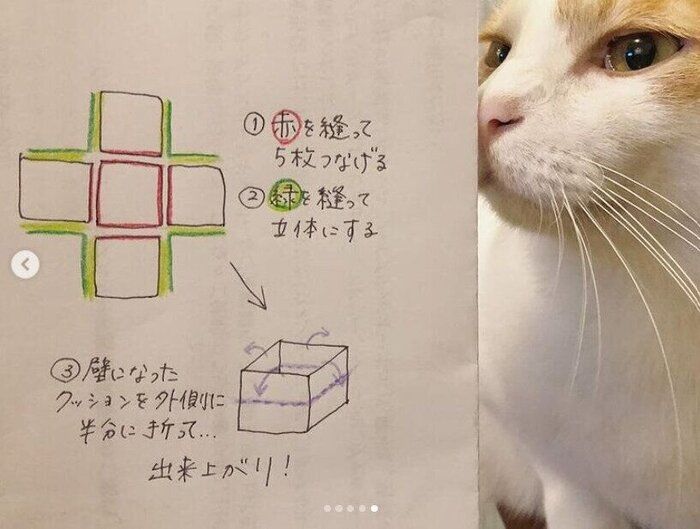 ① 赤を縫って
5枚つなげる
② 緑を縫って
立体にする
③ 壁になった
クッションを外側に
半分に折って…
出来上がり!